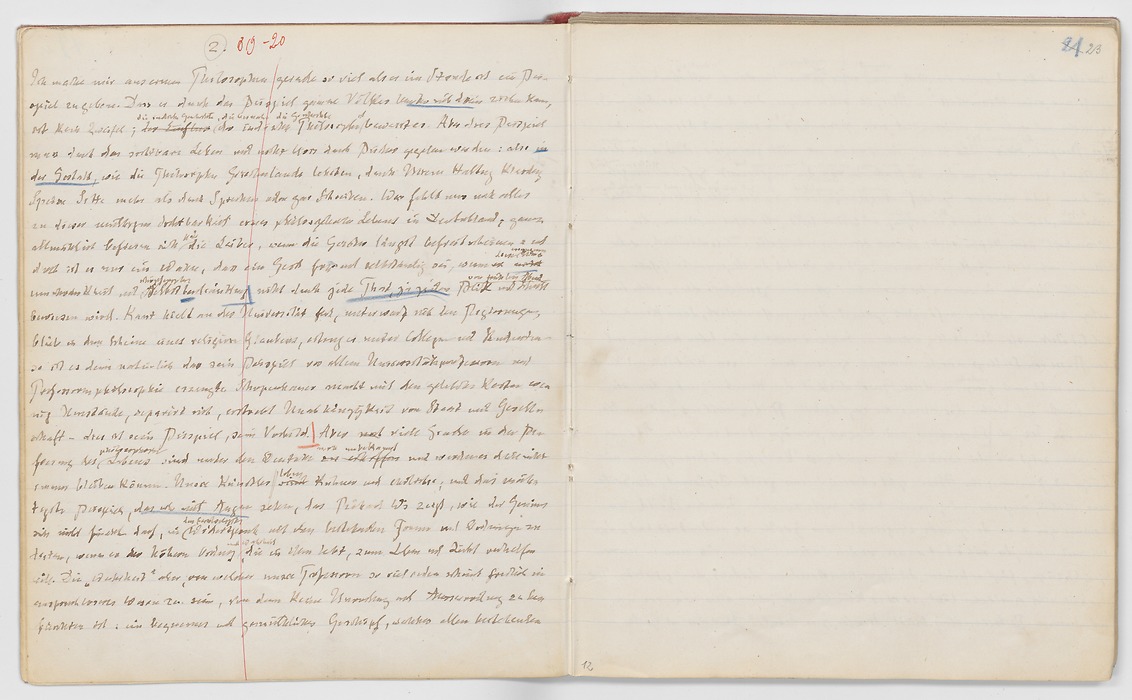 2. 19-20
24 23
Ich mache mir aus einem Philosophen gerade so viel als er im Stande ist ein Bei-
spiel zu geben. Dass er durch das Beispiel ganze Völker nach sich ziehen kann,
die indische Geschichte, die beinahe die Geschichte
ist kein Zweifel; der indischen Philosophie beweist es. Aber das Beispiel
muss durch das sichtbare Leben und nicht bloss durch Bücher gegeben werden: also in
der Gestalt, wie die Philosophen Griechenlands lehrten, durch Miene Haltung Kleidung
Speise Sitte mehr als durch Sprechen oder gar Schreiben. Was fehlt uns noch alles
zu dieser muthigen Sichtbarkeit eines philosophischen Lebens in Deutschland; ganz
allmählich befreien sich hier die Leiber, wenn die Geister längst befreit scheinen; und
doch ist es nur ein Wahn, dass ein Geist frei und selbständig sei, wenn
errungene
von früh bis Abend
nicht durch jede That, Blick und Schritt
bewiesen wird. Kant hielt an der Universität fest, unterwarf sich den Regierungen,
blieb in dem Scheine eines religiösen Glaubens, ertrug es unter Collegen und Studenten
so ist es denn natürlich dass sein Beispiel vor allem Universitätsprofessoren und
Professorenphilosophie erzeugte. Schopenhauer macht mit den gelehrten Kasten we-
nig Umstände, separirt sich, erstrebt Unabhängigkeit von Staat und Gesell-
schaft – dies ist sein Beispiel, sein Vorbild. Aber viele Grade in der Be-
philosophischen noch unbekannt
freiung des Lebens sind unter den Deutschen und werden es nicht
immer bleiben können. Unsre Künstler leben kühner und ehrlicher; und das mäch-
tigste Beispiel, das wir mit Augen sehen, das Richard Ws zeigt, wie der Genius
sich nicht fürchten darf, in den feindseligsten Widerspruch mit den bestehenden Formen und Ordnungen zu
treten, wenn er der höhern Ordnung und Wahrheit, die in ihm lebt, zum Leben und Licht verhelfen
will. Die „Wahrheit“ aber, von welcher unsre Professoren so viel reden scheint freilich ein
anspruchsloseres Wesen zu sein, von dem keine Unordnung und Ausserordnung zu be-
fürchten ist: ein bequemes und gemüthliches Geschöpf, welches allen bestehenden
12